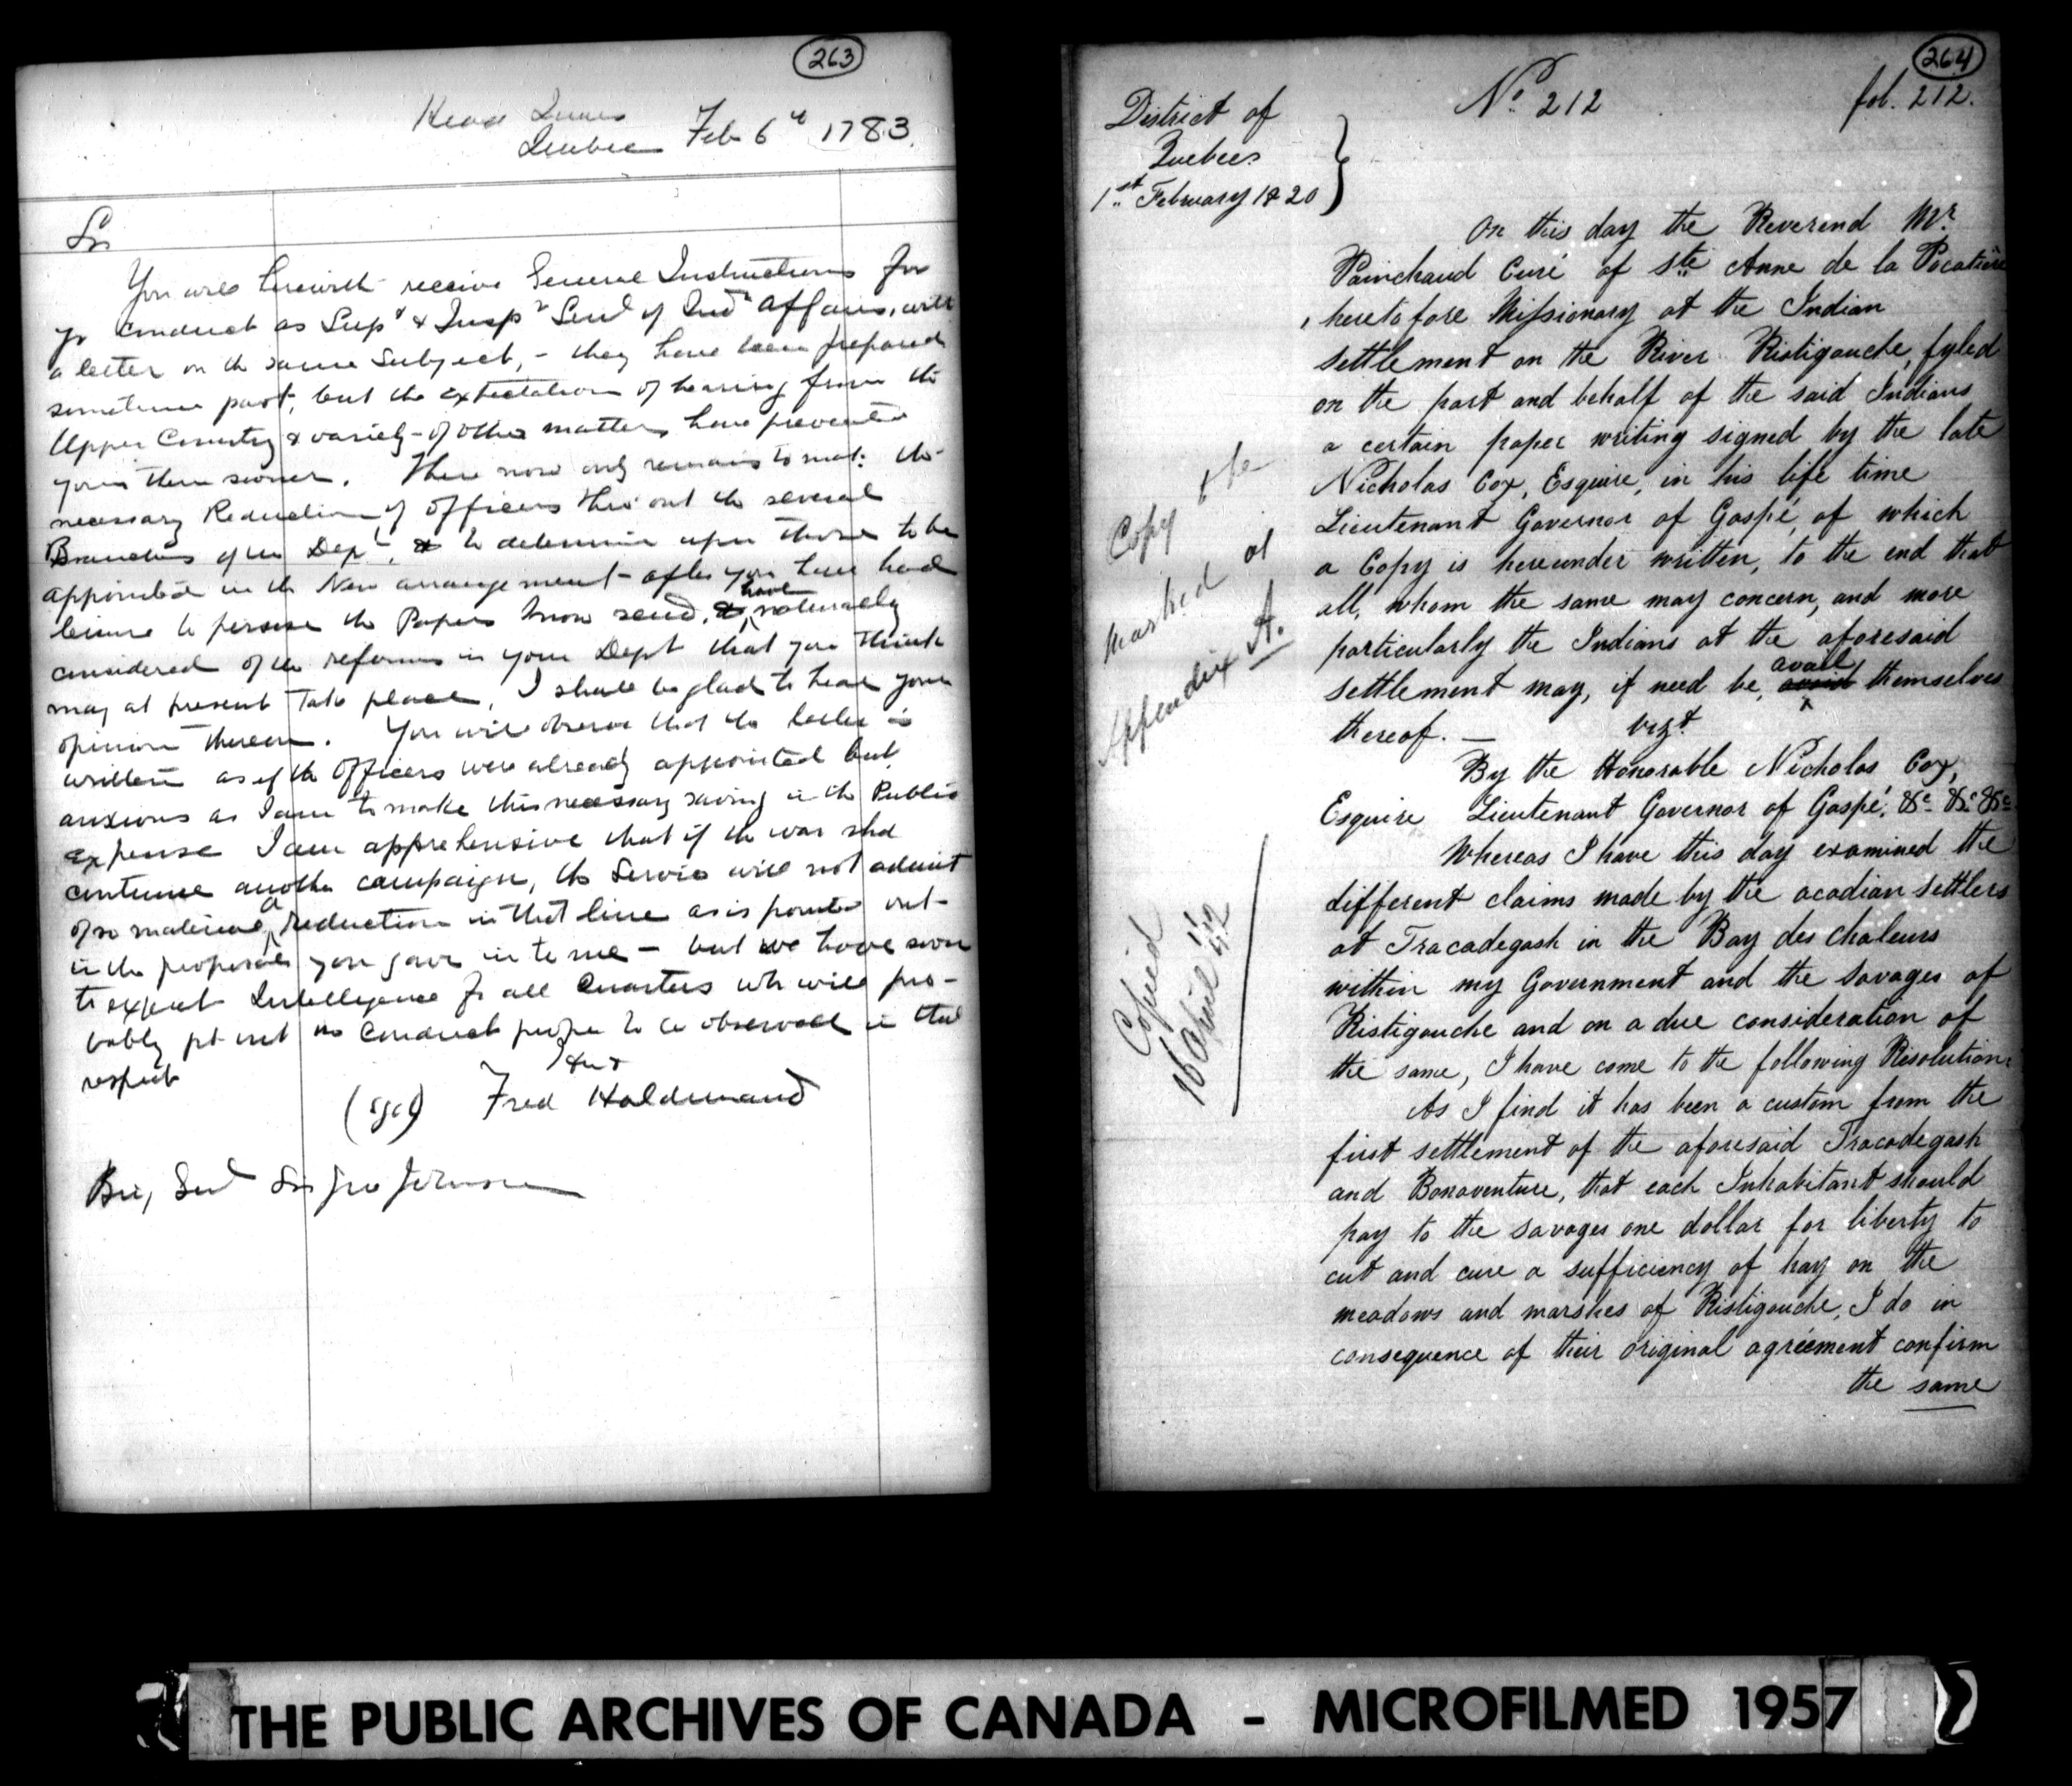 263
Head Quars
Quebec Feb 6th 1783.
Sir
You will herewith receive General Instructions for
yr conduct as Supt & Inspr Genl of Indn Affairs, with
a letter on the same Subject, - they have been prepared
sometime past, but the expectation of hearing from the
Upper Country & variety of other matters have prevented
your them sooner. There now only remains to make the
necessary Reduction of officers thro' out the several
Branches of the Dept, & to determine upon those to be
appointed in the New arrangement - after you have had
leisure to peruse the Papers I now send, & have maturely
considered of the reforms in your Dept that you think
may at present take place, I shall be glad to hear your
opinion thereon. You will observe that the letter is
written as if the Officers were already appointed but
anxious as I am to make this necessary saving in the Public
expense I am apprehensive that if the war shd
continue another campaign, the Service will not admit
of so material a reduction in that line as is pointed out
in the proposals you gave in to me - but we have soon
to expect Intelligence fr all Quarters wh will pro-
bably pt out the conduct proper to be observed in that
respect
(sgd) Fred Haldimand
Brig Genl Sir Jno Johnson
264
No 212
fol. 212.
District of
Quebec
1st February 1820
On this day the Reverend Mr
Painchaud Curé of Ste Anne de la Pocatière
heretofore Missionary at the Indian
settlement on the River Ristigouche, fyled
on the part and behalf of the said Indians
a certain paper writing signed by the late
Nicholas Cox, Esquire, in his life time
Lieutenant Governor of Gaspé, of which
a Copy is hereunder written, to the end that
all, whom the same may concern, and more
particularly the Indians at the aforesaid
settlement may, if need be, avail themselves
thereof. — vizt
By the Honorable Nicholas Cox,
Esquire Lieutenant Governor of Gaspé, &c &c &c
Whereas I have this day examined the
different claims made by the acadian settlers
at Tracadegash in the Bay des Chaleurs
within my Government and the Savages of
Ristigouche and on a due consideration of
the same, I have come to the following Resolution:
As I find it has been a custom from the
first settlement of the aforesaid Tracadegash
and Bonaventure, that each Inhabitant should
pay to the savages one dollar for liberty to
cut and cure a sufficiency of hay on the
meadows and marshes of Ristigouche, I do in
consequence of their original agréement confirm
the same
Copy to be
marked as
Appendix A.
Copied
16 April
THE PUBLIC ARCHIVES OF CANADA - MICROFILMED 1957